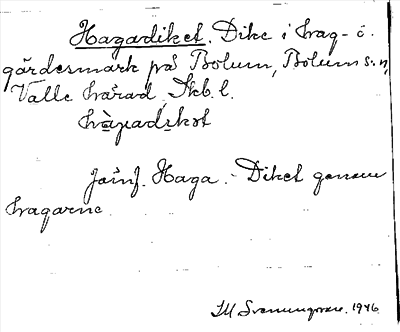 Hagadiket. Dike i hag- o.
gärdesmark på Bolum, Bolum s:n,
Valle härad, Skb. l.
Jämf. Haga. - Diket genom
hagarne.
1946